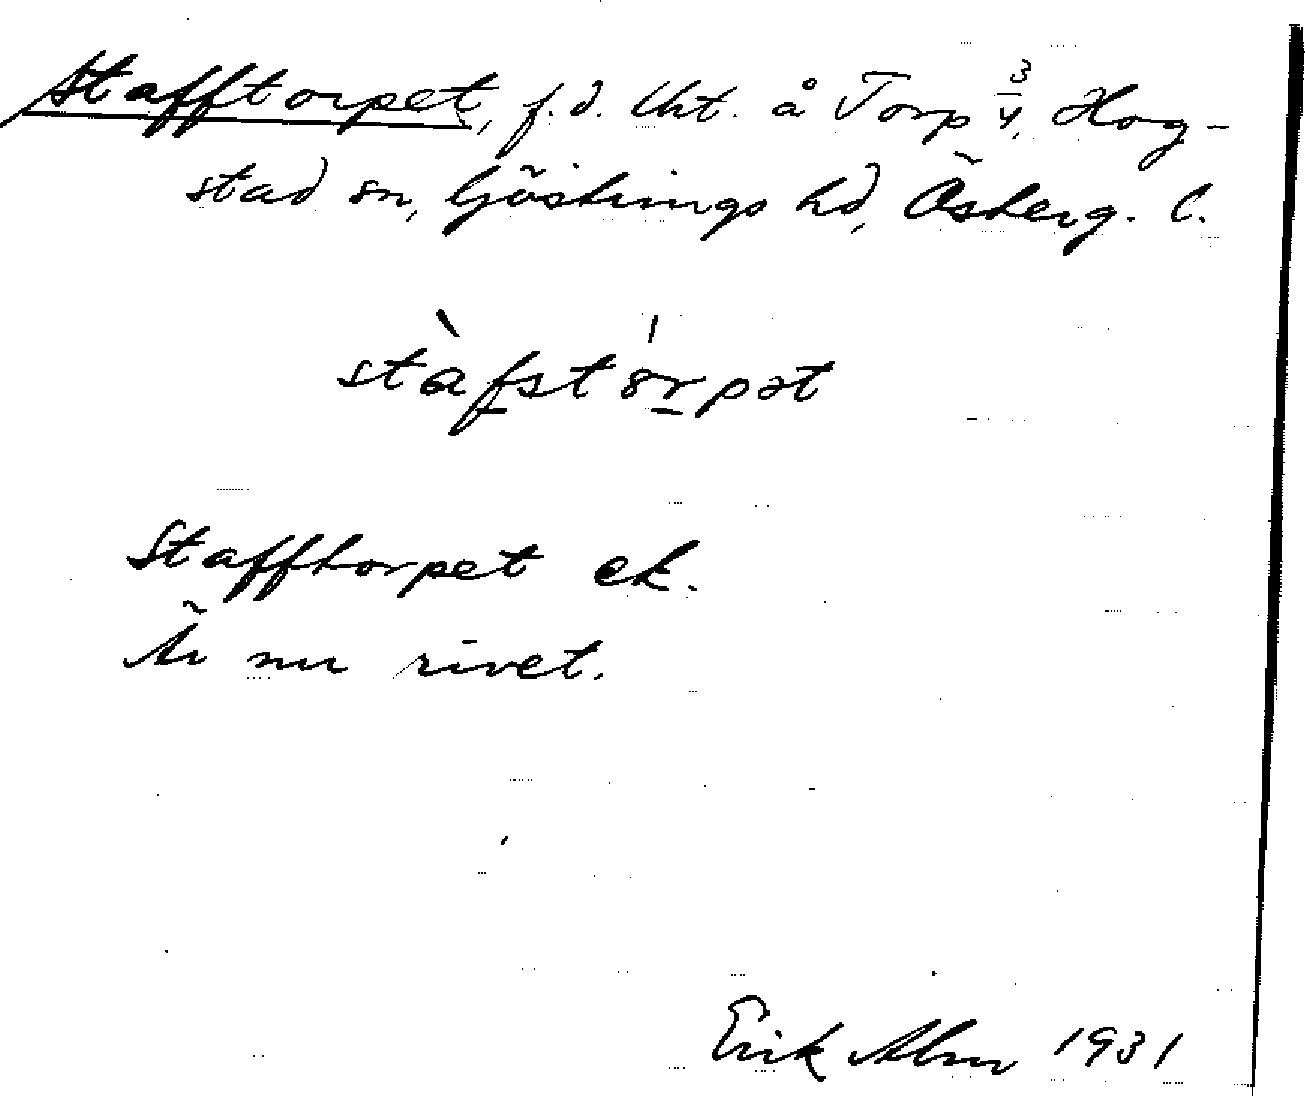 Stafftorpet, f.d. lht. å Torp 3/4, Hog-
stad sn, Göstrings hd, Österg. l.
stafstorpət
Stafftorpet ek.
Är nu rivet.
Erik Alm 1931